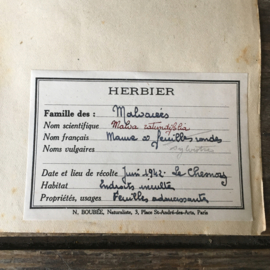 HERBIER
Famille des : Malvacées
Nom scientifique Malva rotundifolia
Nom français Mauve à feuilles rondes
Noms vulgaires
Date et lieu de récolte Juin 1942. Le Chesnay
Habitat Endroits incultes
Propriétés, usages Feuilles adoucissantes
N. BOUBÉE, Naturaliste, 3, Place St-André-des-Arts, Paris